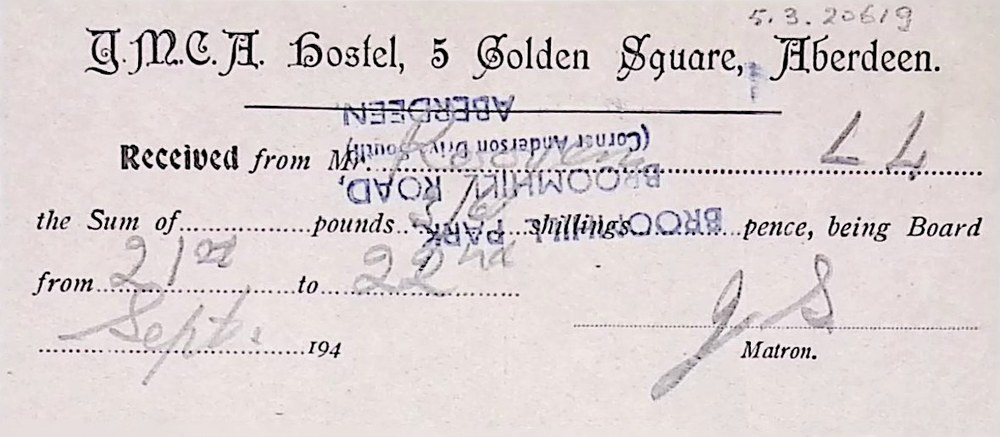 5.3.20619
Y.M.C.A. Hostel, 5 Golden Square, Aberdeen.
Received from Mr. L L
the Sum of pounds 5/6 shillings pence, being Board
from 21st to 22nd
Sept. 194
J S
Matron.
BROOMHILL PARK
BROOMHILL ROAD,
(Corner Anderson Drive South)
ABERDEEN.